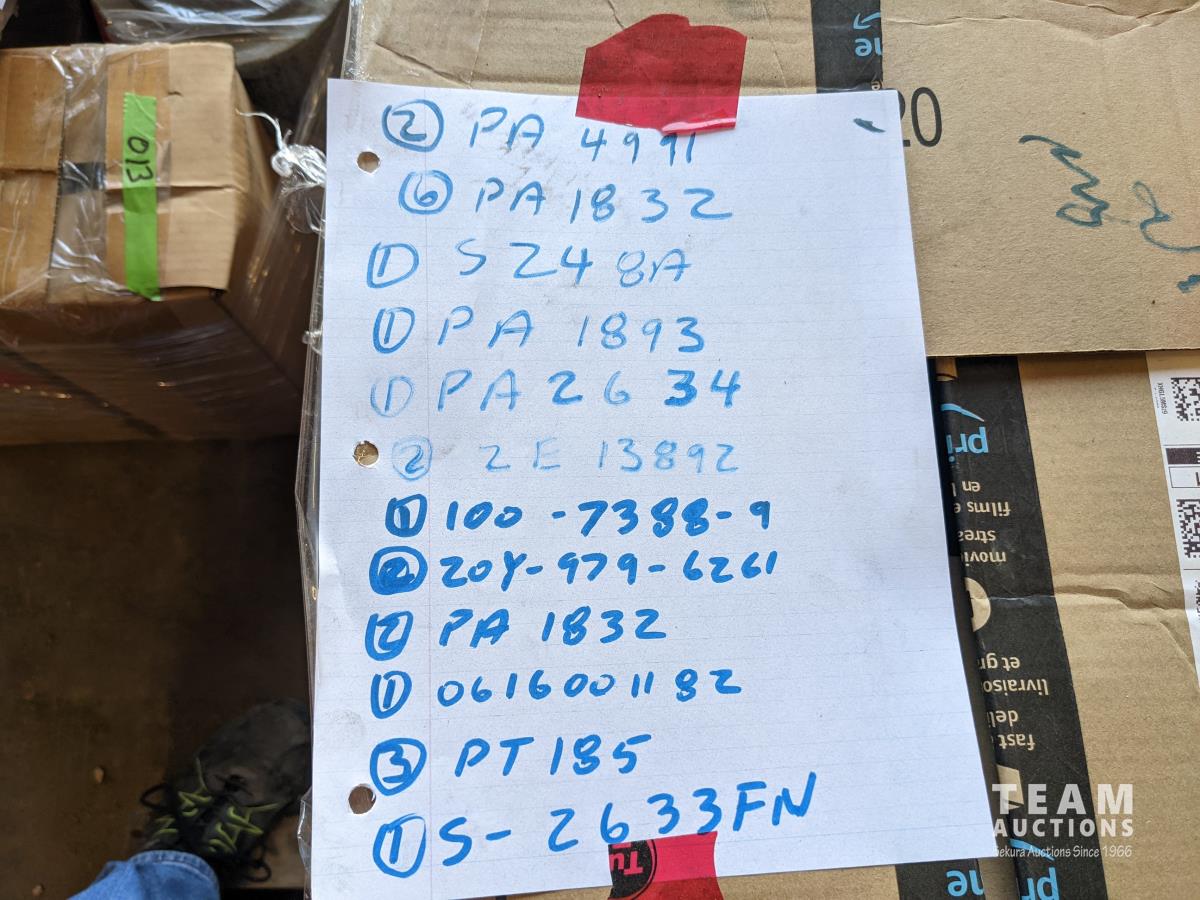 ② PA 4991
⑥ PA 1832
① SZ48A
① PA 1893
① PA 2634
② 2E 13892
① 100-7388-9
② 20Y-979-6261
② PA 1832
① 0616001182
③ PT185
① S-2633FN
013
20
prim
en
films e
strea
movi
et gra
livraiso
deli
fast
TEAM
AUCTIONS
Sekura Auctions Since 1966